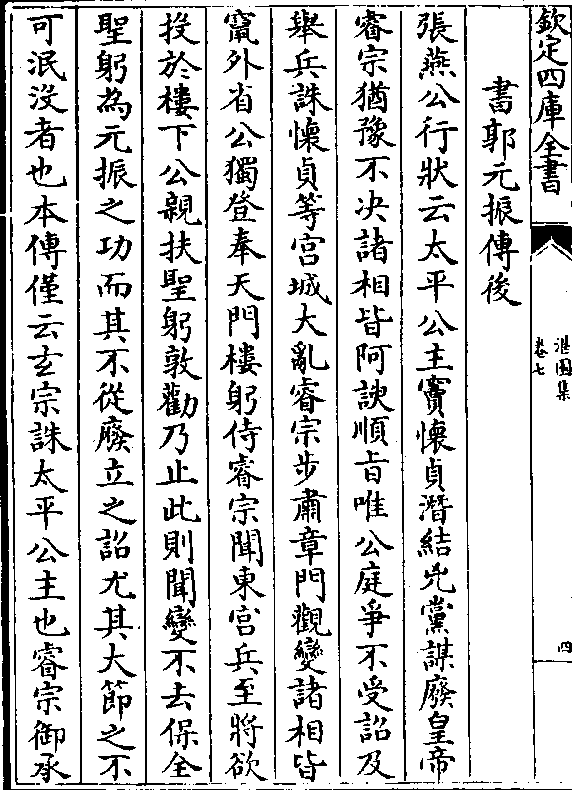 欽定四庫全書
湛園集
卷七
四
書郭元振傳後
張燕公行狀云太平公主竇懷貞潛結兇黨謀廢皇帝
睿宗猶豫不决諸相皆阿諛順旨唯公庭爭不受詔及
舉兵誅懷貞等宮城大亂睿宗步肅章門觀變諸相皆
竄外省公獨登奉天門樓躬侍睿宗聞東宮兵至將欲
投於樓下公親扶聖躬敦勸乃止此則聞變不去保全
聖躬為元振之功而其不從廢立之詔尤其大節之不
可泯沒者也本傳僅云玄宗誅太平公主也睿宗御承